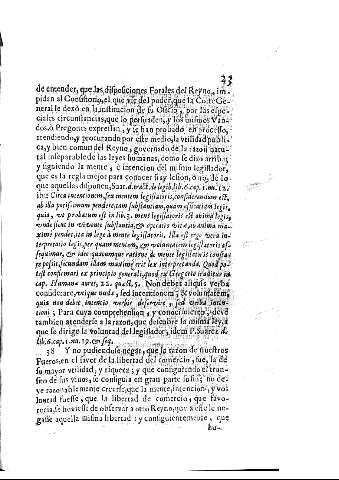 23
de entender, que las disposiciones Forales del Reyno, im-
pidan al Consistorio, el que use del poder, que la Corte Ge-
neral le dexò en la institucion de su Oficio, por las espe-
ciales circunstancias, que lo persuaden, y los mismos Van-
dos, ò Pregones expressan, y se han probado en processo,
atendiendo, y procurando por este medio, la utilidad publi-
ca, y bien comun del Reyno, governado de la razon natu-
ral inseparable de las leyes humanas, como se dixo arriba;
y siguiendo la mente, è intencion del mismo legislador,
que es la regla mejor para conocer si ay lesion, ò no, de lo
que aquellas disponen, Suar. d. tract. de legib. lib. 6. cap. 1. nu. 12.
ibi: Circa intentionem, seu mentem legislatoris, considerandum est,
ab illa perissimum pendere, tam substantiam, quam efficatiam legis,
quia, ut probatum est in lib. 3. mens legislatoris est anima legis,
unde sicut in vivente substantia, & operatio vitæ, ab anima ma-
ximè pendet, ita in lege à mente legislatoris. Illa est ergo vera in-
terpretatio legis, per quam mentem, & voluntatem legislatoris as-
sequimur, & ideo quacumque ratione de mente legislatoris constare
possit, secundum illam maximè erit lex interpretanda. Quod po-
test confirmari ex principio generali, quod ex Gregorio traditur in
cap. Humanæ aures, 22. quæst. 5. Non debet aliquis verba
considerare, sed intentionem, & voluntatem,
quia non debet, intentio verbis deservire, sed verba inten-
tioni; Para cuya comprehension, y conocimiento, deve
tambien atenderse à la razon, que descubre la misma ley, à
que se dirige la voluntad de legislador, idem P. Suarez d.
lib. 6. cap. 1. nu. 19. cum seq.
38 Y no pudiendose negar, que la razon de nuestros
Fueros, en el favor de la libertad del comercio, fue, la de
su mayor utilidad, y riqueza; y que consiguiendo el tran-
sito de sus vinos, lo consiguia en gran parte sus; no de-
ve razonablemente creerse, que la mente, intencion, y vo-
luntad fuesse, que la libertad de comercio, que favo-
recia, se huviesse de observar à otro Reyno, que à este le ne-
gasse aquella misma libertad; y consiguientemente, que
hu-